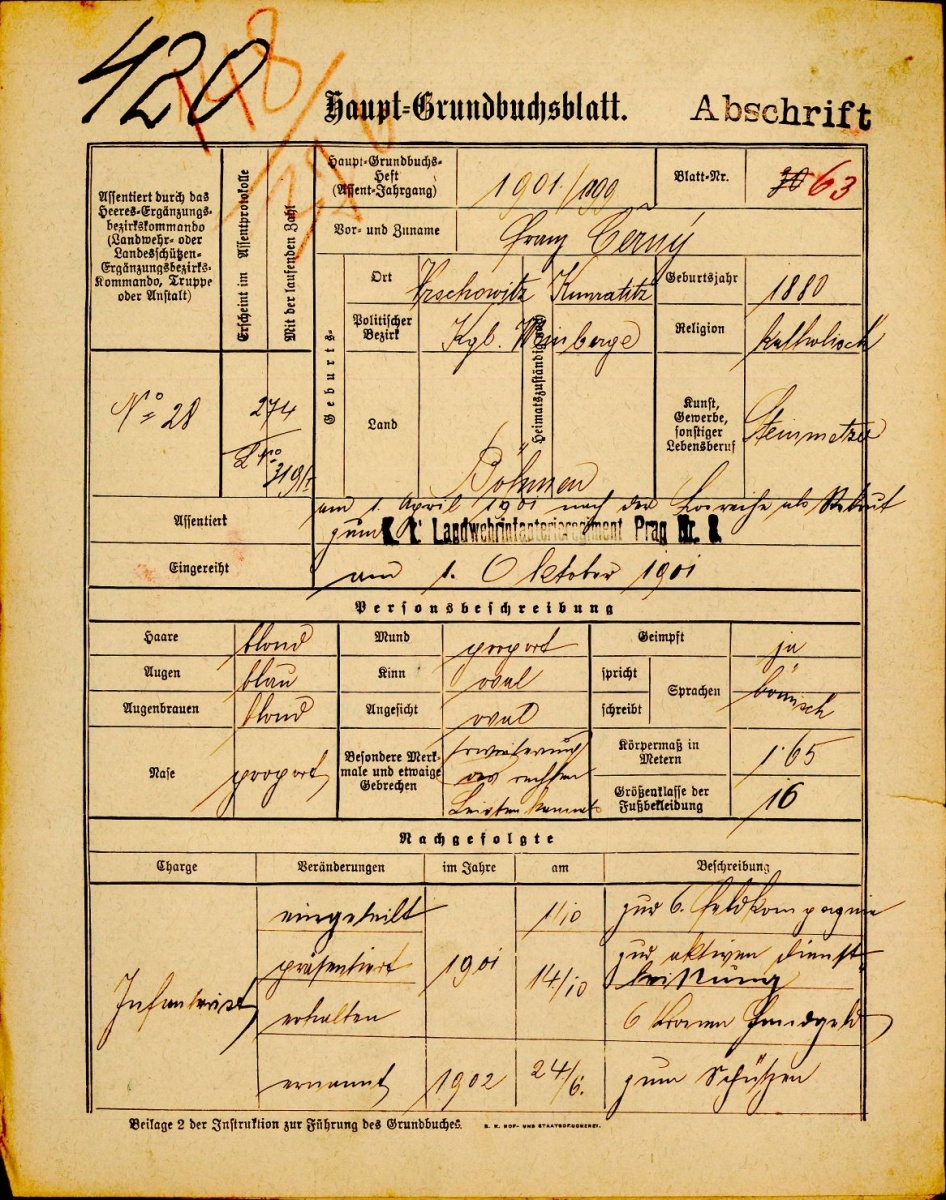 420
148/
Haupt-Grundbuchsblatt.
Abschrift
Assentiert durch das
Heeres-Ergänzungs-
bezirkskommando
(Landwehr- oder
Landesschützen-
Ergänzungsbezirks-
Kommando, Truppe
oder Anstalt)
Erscheint im Assentprotokolle
Mit der laufenden Zahl
Haupt-Grundbuchs-
Heft
(Assent-Jahrgang)
1901/1899
Blatt-Nr.
70 63
Vor- und Zuname
Franz Černý
Geburts-
Ort
Vrschowitz
Heimatszuständigkeit
Kunratitz
Geburtsjahr
1880
Politischer
Bezirk
Kgl. Weinberge
Religion
katholisch
No 28
274
Land
Böhmen
Kunst,
Gewerbe,
sonstiger
Lebensberuf
Steinmetzer
Assentiert
am 1. April 1901 nach der Losreihe als Rekrut
zum K. k. Landwehrinfanterieregiment Prag Nr. 8.
Eingereiht
am 1. Oktober 1901
Personsbeschreibung
Haare
blond
Mund
proport
Geimpft
ja
Augen
blau
Kinn
oval
spricht
schreibt
Sprachen
bömisch
Augenbrauen
blond
Angesicht
oval
Nase
proport
Besondere Merk-
male und etwaige
Gebrechen
Erweiterung
des rechten
Leistenkanals
Körpermaß in
Metern
1·65
Größenklasse der
Fußbekleidung
16
Nachgefolgte
Charge
Veränderungen
im Jahre
am
Beschreibung
Infanterist
eingeteilt
1901
1/10
zur 6. Feldkompagnie
präsentiert
14/10
zur aktiven Dienst-
leistung
erhalten
6 Kronen Handgeld
ernannt
1902
24/6.
zum Schützen
Beilage 2 der Instruktion zur Führung des Grundbuches.
K. K. HOF- UND STAATSDRUCKEREI.